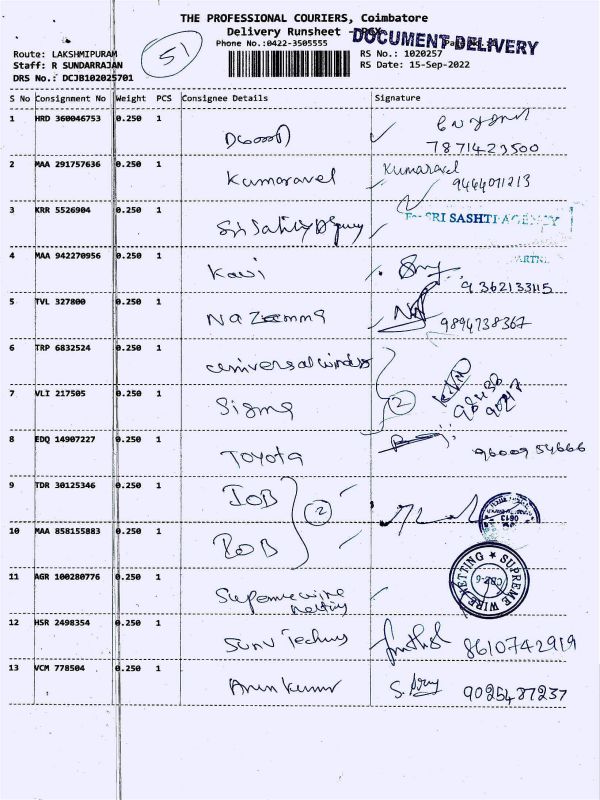 THE PROFESSIONAL COURIERS, Coimbatore
Delivery Runsheet -
DOCUMENT DELIVERY
Phone No.:0422-3505555
51
Route: LAKSHMIPURAM
RS No.: 1020257
Staff: R SUNDARRAJAN
RS Date: 15-Sep-2022
DRS No.: DCJB102025701
S No Consignment No Weight PCS Consignee Details Signature
1 HRD 360046753 0.250 1
7871423500
2 MAA 291757636 0.250 1 Kumaravel Kumaravel
9444071213
3 KRR 5526904 0.250 1 Sri Sashti Agency
For SRI SASHTI AGENCY
4 MAA 942270956 0.250 1 Kavi
9362133115
5 TVL 327800 0.250 1 Nazeema
9894738367
6 TRP 6832524 0.250 1 universal
7 VLI 217505 0.250 1 Sigma 2
8 EDQ 14907227 0.250 1 TOYOTA 9600954666
9 TDR 30125346 0.250 1 IOB 2
10 MAA 858155883 0.250 1 BOB
11 AGR 100280776 0.250 1 Supreme wire
netting
SUPREME WIRE NETTING
CBE-6
12 HSR 2498354 0.250 1 8610742919
13 VCM 778504 0.250 1 Arun Kumar 9025487237